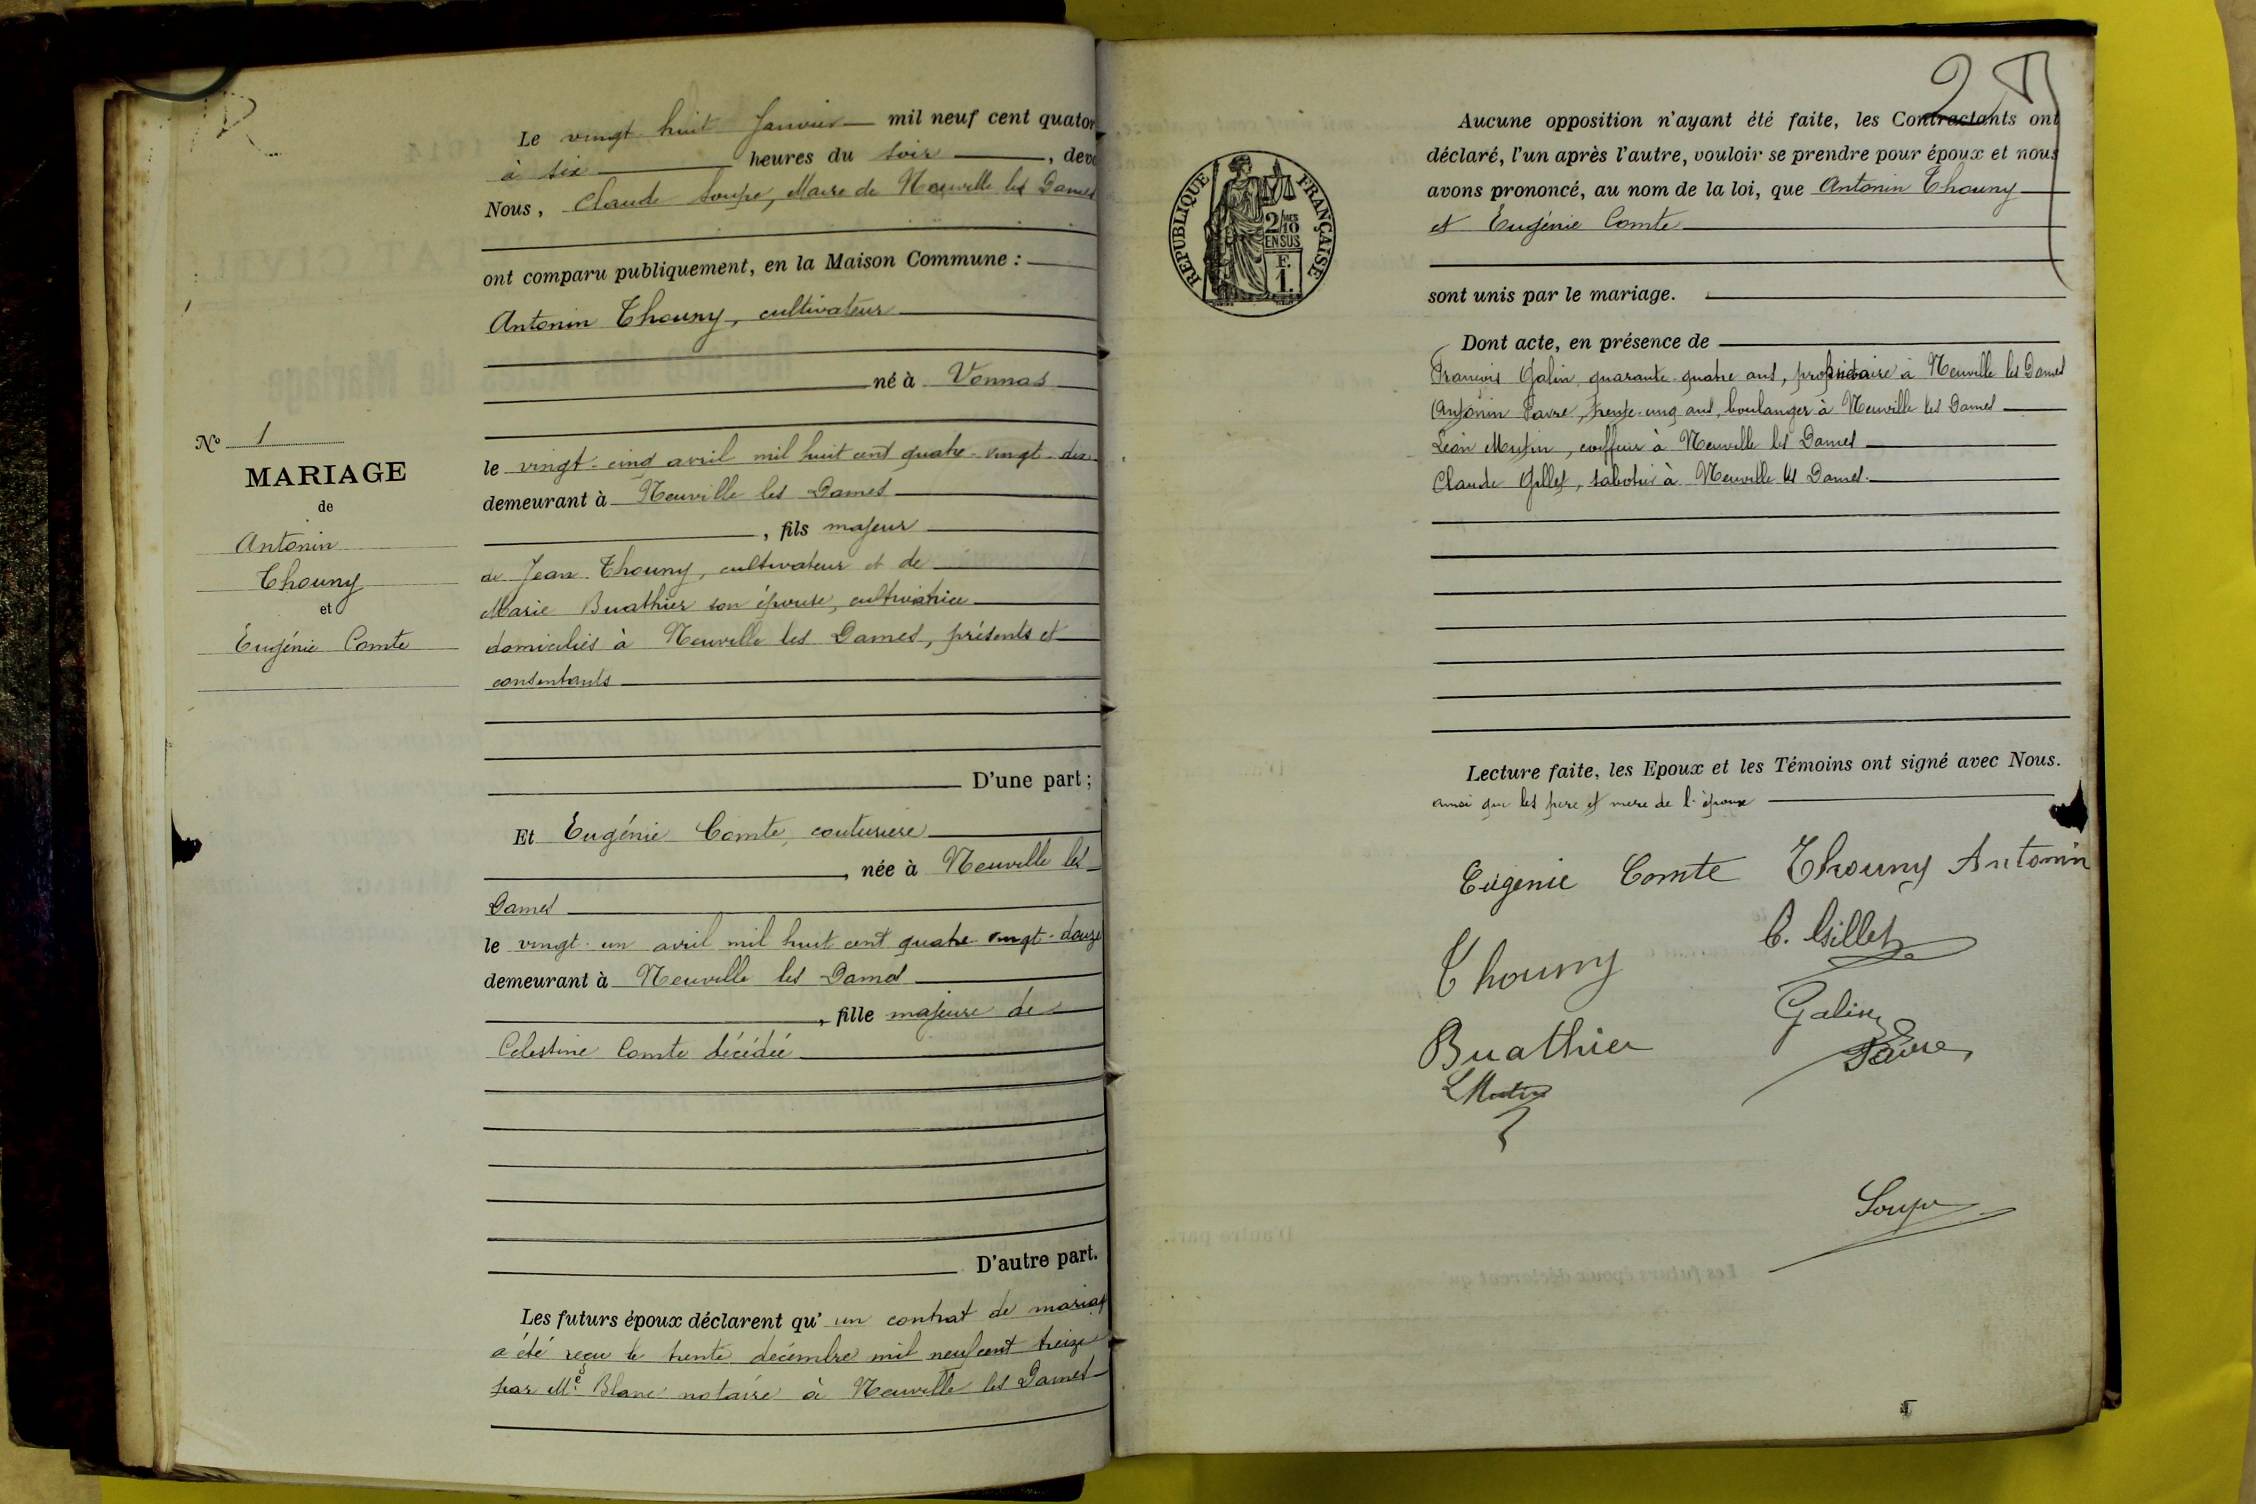 Le vingt huit Janvier mil neuf cent quator
à six heures du soir, deva
Nous, Claude Soupe, Maire de Neuville les Dames
ont comparu publiquement, en la Maison Commune :
Antonin Thouny, cultivateur
né à Vonnas
No 1
MARIAGE
de
Antonin
Thouny
et
Eugénie Comte
le vingt-cinq avril mil huit cent quatre-vingt-dix
demeurant à Neuville les Dames
, fils majeur
de Jean Thouny, cultivateur et de
Marie Buathier son épouse, cultivatrice
domiciliés à Neuville les Dames, présents et
consentants
D'une part ;
Et Eugénie Comte, couturiere
, née à Neuville les
Dames
le vingt-un avril mil huit cent quatre-vingt-douze
demeurant à Neuville les Dames
, fille majeure de
Celestine Comte décédée
D'autre part.
Les futurs époux déclarent qu'un contrat de mariag
a été reçu le trente décembre mil neuf cent treize
par Me Blanc notaire à Neuville les Dames
2
RÉPUBLIQUE FRANÇAISE
2/10 EN SUS
F. 1.
Aucune opposition n'ayant été faite, les Contractants ont
déclaré, l'un après l'autre, vouloir se prendre pour époux et nous
avons prononcé, au nom de la loi, que Antonin Thouny
et Eugénie Comte
sont unis par le mariage.
Dont acte, en présence de
François Galin, quarante-quatre ans, propriétaire à Neuville les Dames
Antonin Favre, trente-cinq ans, boulanger à Neuville les Dames
Léon Mutin, coiffeur à Neuville les Dames
Claude Gillet, sabotier à Neuville les Dames.
Lecture faite, les Epoux et les Témoins ont signé avec Nous.
ainsi que les pere et mere de l'époux
Eugénie Comte Thouny Antonin
C. Gillet
Thouny
Galin
Buathier
Favre
L Mutin
Soupe